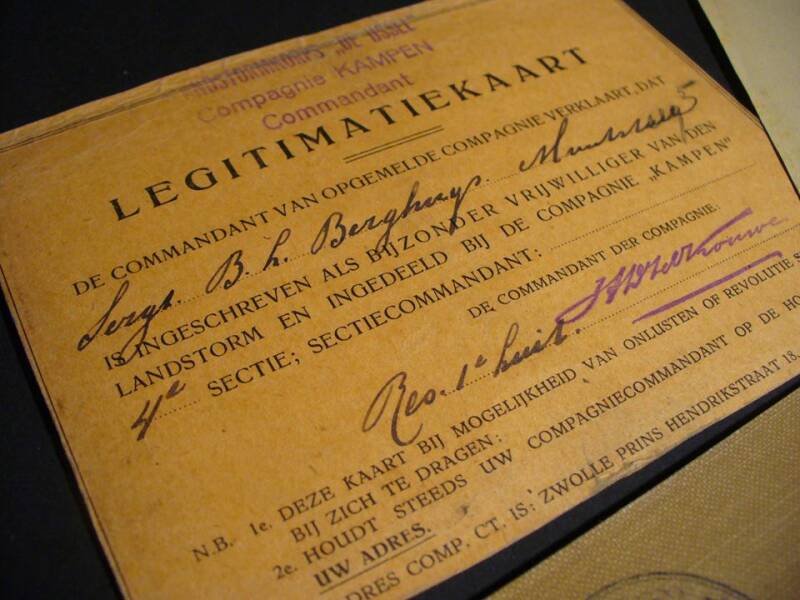 LANDSTORMKORPS „DE IJSSEL"
Compagnie KAMPEN
Commandant
LEGITIMATIEKAART
DE COMMANDANT VAN OPGEMELDE COMPAGNIE VERKLAART, DAT
Sergt. B. L. Berghuys.
IS INGESCHREVEN ALS BIJZONDER VRIJWILLIGER VAN DEN
LANDSTORM EN INGEDEELD BIJ DE COMPAGNIE „KAMPEN"
4e SECTIE; SECTIECOMMANDANT:
DE COMMANDANT DER COMPAGNIE:
Res. 1e luit.
N.B. 1e. DEZE KAART BIJ MOGELIJKHEID VAN ONLUSTEN OF REVOLUTIE
BIJ ZICH TE DRAGEN:
2e. HOUDT STEEDS UW COMPAGNIECOMMANDANT OP DE
UW ADRES.
DRES COMP. CT. IS: ZWOLLE PRINS HENDRIKSTRAAT 18.